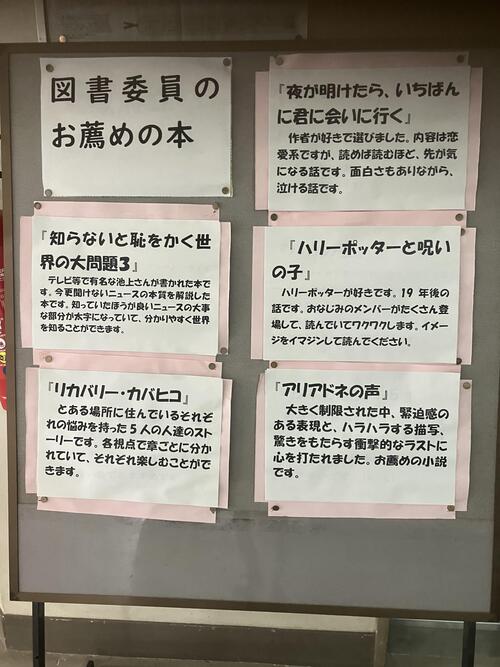 図書委員の
お薦めの本
『夜が明けたら、いちばん
に君に会いに行く』
作者が好きで選びました。内容は恋
愛系ですが、読めば読むほど、先が気
になる話です。面白さもありながら、
泣ける話です。
『知らないと恥をかく世
界の大問題３』
テレビ等で有名な池上さんが書かれた本で
す。今更聞けないニュースの本質を解説した
本です。知っていたほうが良いニュースの大事
な部分が太字になっていて、分かりやすく世界
を知ることができます。
『ハリーポッターと呪い
の子』
ハリーポッターが好きです。19 年後の
話です。おなじみのメンバーがたくさん登
場して、読んでいてワクワクします。イメー
ジをイマジンして読んでください。
『リカバリー・カバヒコ』
とある場所に住んでいるそれぞ
れの悩みを持った５人の人達のスト
ーリーです。各視点で章ごとに分か
れていて、それぞれ楽しむことがで
きます。
『アリアドネの声』
大きく制限された中、緊迫感の
ある表現と、ハラハラする描写、
驚きをもたらす衝撃的なラストに
心を打たれました。お薦めの小説
です。